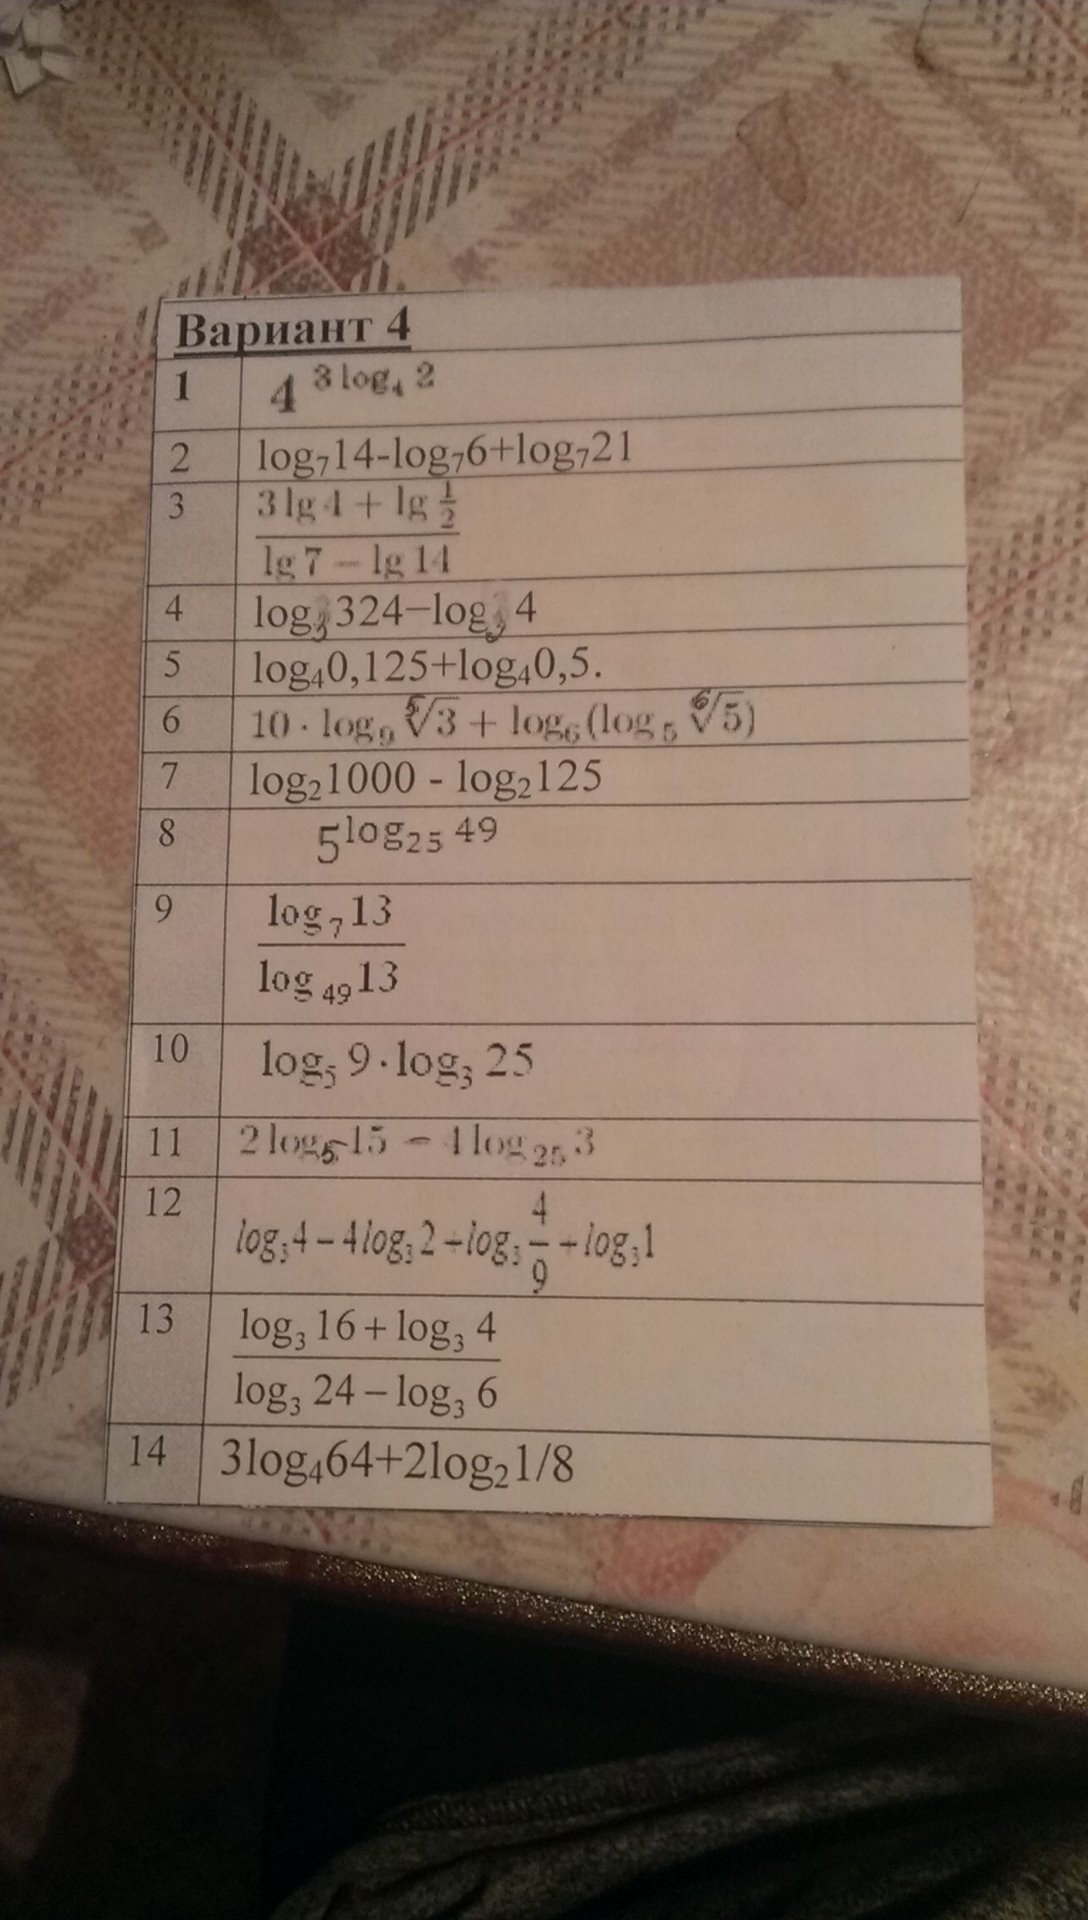 Вариант 4
1 4^(3 log₄ 2)
2 log₇14-log₇6+log₇21
3 (3 lg 4 + lg 1/2) / (lg 7 − lg 14)
4 log₃324−log₃4
5 log₄0,125+log₄0,5.
6 10 · log₉ ⁵√3 + log₆(log₅ ⁶√5)
7 log₂1000 - log₂125
8 5^(log₂₅ 49)
9 log₇13 / log₄₉13
10 log₅ 9·log₃ 25
11 2 log₅ 15 − 4 log₂₅ 3
12 log₃4−4log₃2+log₃ 4/9 +log₃1
13 (log₃ 16 + log₃ 4) / (log₃ 24 − log₃ 6)
14 3log₄64+2log₂1/8